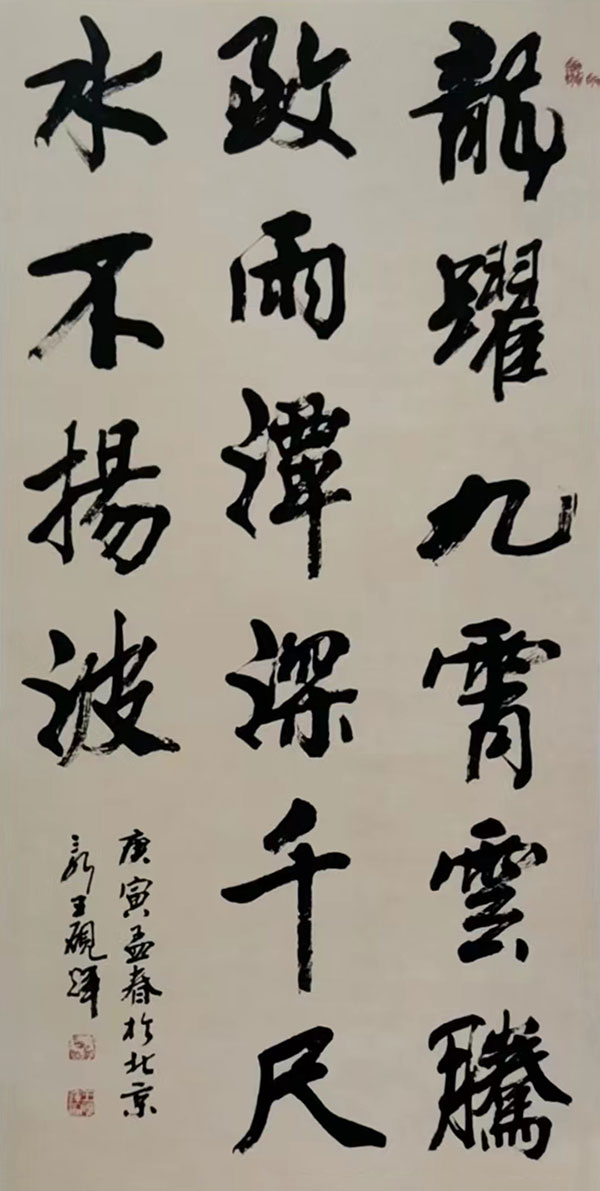 龍躍九霄雲騰
致雨潭深千尺
水不揚波
庚寅孟春於北京
王硯輝